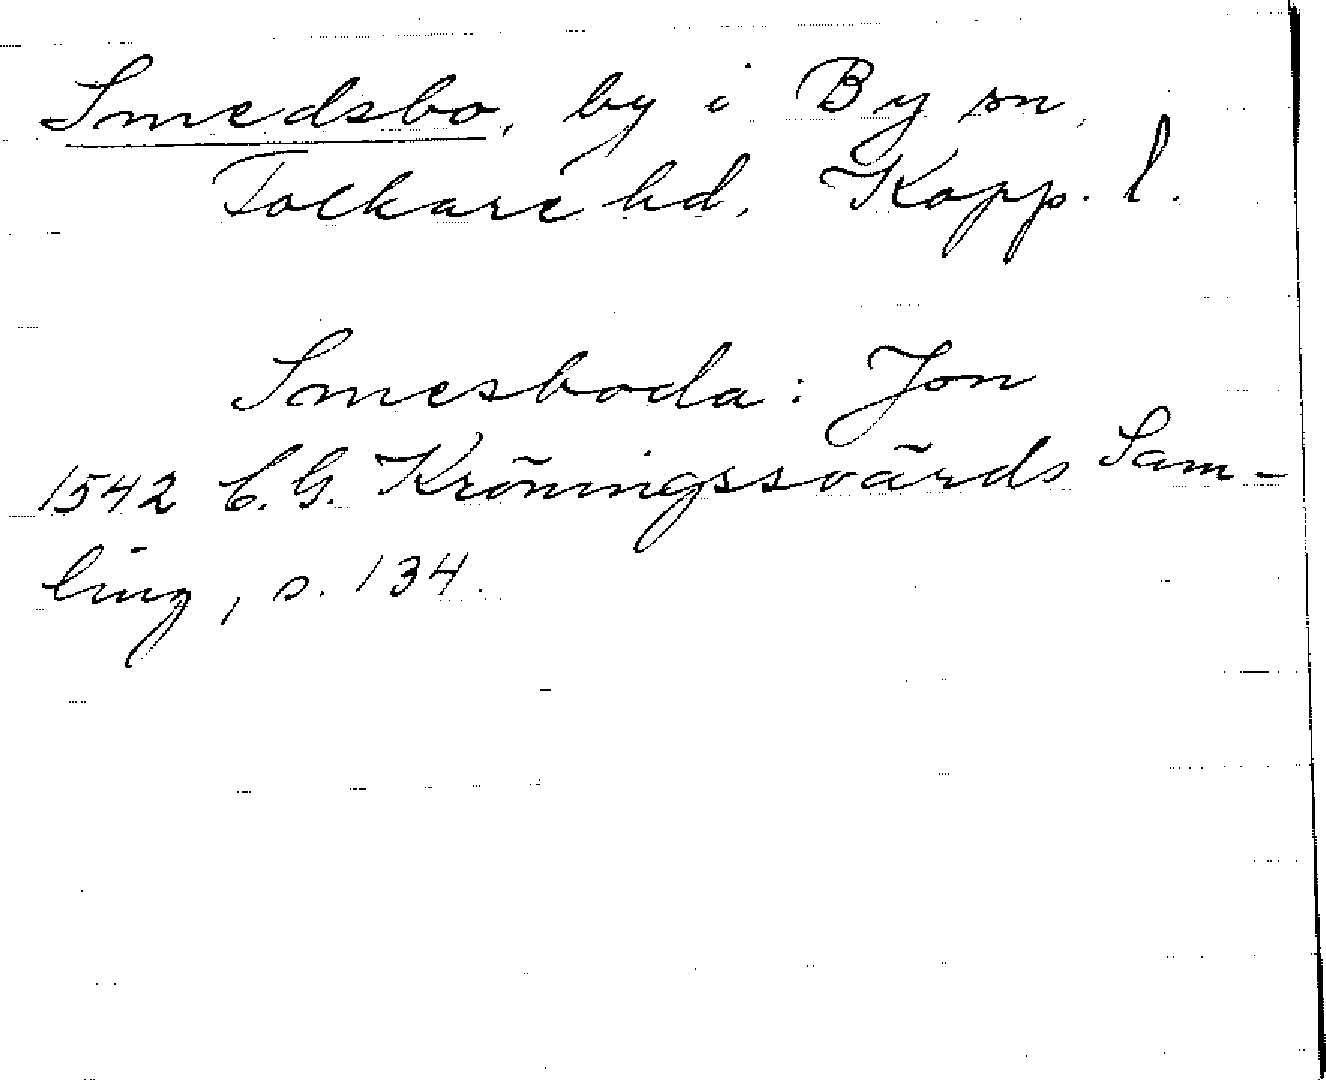 Smedsbo, by i By sn,
Folkare hd, Kopp. l.
Smesboda: Jon
1542 C.G. Kröningssvärds Sam-
ling, s. 134.